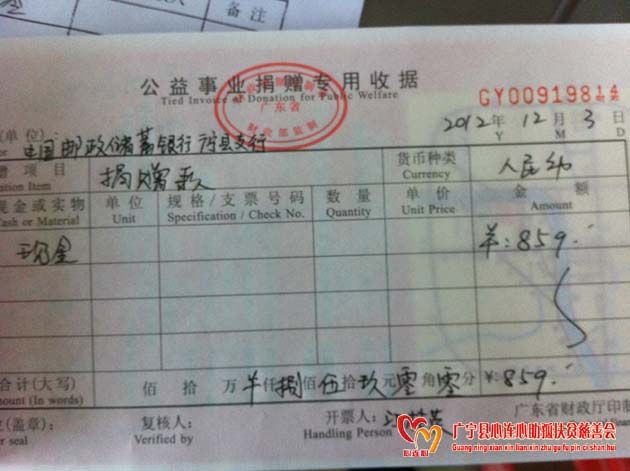 备注
公益事业捐赠专用收据
Tied Invoice of Donation for Public Welfare
广东省
财政部监制
GY00919814
(单位): 中国邮政储蓄银行广宁县支行
2012年 12月 3日
Y M D
赠项目 捐赠款
货币种类 人民币
Item Currency
现金或实物 单位 规格/支票号码 数量 单价 金额
Cash or Material Unit Specification / Check No. Quantity Unit Price Amount
现金 ¥:859.
合计(大写) 佰 拾 万 仟 捌佰 伍拾 玖元 零角 零分 ¥:859.
Amount (In words)
(盖章): 复核人: 开票人: 广东省财政厅印制
Verified by Handling Person
广宁县心连心助孤扶贫慈善会
Guang ning xian xin lian xin zhu gu fu pin ci shan hui
心连心